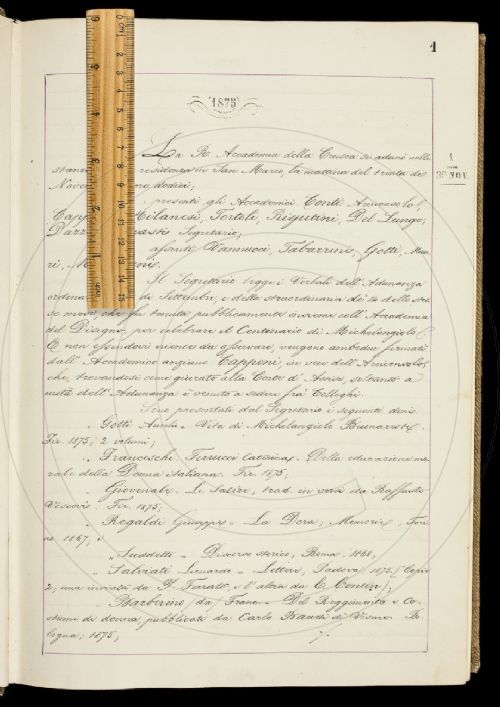 1
1875
1
30 NOV.
La R. Accademia della Crusca si adunò nelle
stanze residenza in San Marco la mattina del trenta di
Novem ore dodici;
presenti gli Accademici Conti Arciconsolo
Capp Milanesi, Tortoli, Rigutini, Del Lungo,
Dazz Segretario;
assenti Vannucci, Tabarrini, Gotti,
ri, M
Il Segretario legge i Verbali dell'Adunanza
ordinaria di Settembre, e della straordinaria dei 14 dello stes
so mese, che fu tenuta pubblicamente insieme coll'Accademia
del Disegno, per celebrare il Centenario di Michelangiolo.
E non essendovi niente da osservare, vengono ambedue firmati
dall'Accademico anziano Capponi, in vece dell'Arciconsolo,
che, trovandosi come giurato alla Corte d'Assise, soltanto a
metà dell'Adunanza è venuto a sedere fra' Colleghi.
Sono presentati dal Segretario i seguenti doni.
" Gotti Aurelio - Vita di Michelangiolo Buonarroti.
Fir. 1875; 2 volumi;
" Franceschi Ferrucci Caterina. Della educazione mo
rale della Donna italiana. Fir. 1875;
" Giovenale. Le Satire, trad. in versi da Raffaello
Vescovi. Fir. 1875;
" Regaldi Giuseppe - La Dora, Memorie, Tori
no 1867, e
" Suddetto - Discorso storico, Roma, 1868;
" Salviati Lionardo - Lettere, Padova 1875 (Copie
2, una inviata da P. Ferrato, e l'altra da E. Conten);
" Barberino (da) Franc. - Del Reggimento e Co-
stumi di donna, pubblicati da Carlo Baudi di Vesme. Bo
logna, 1875;